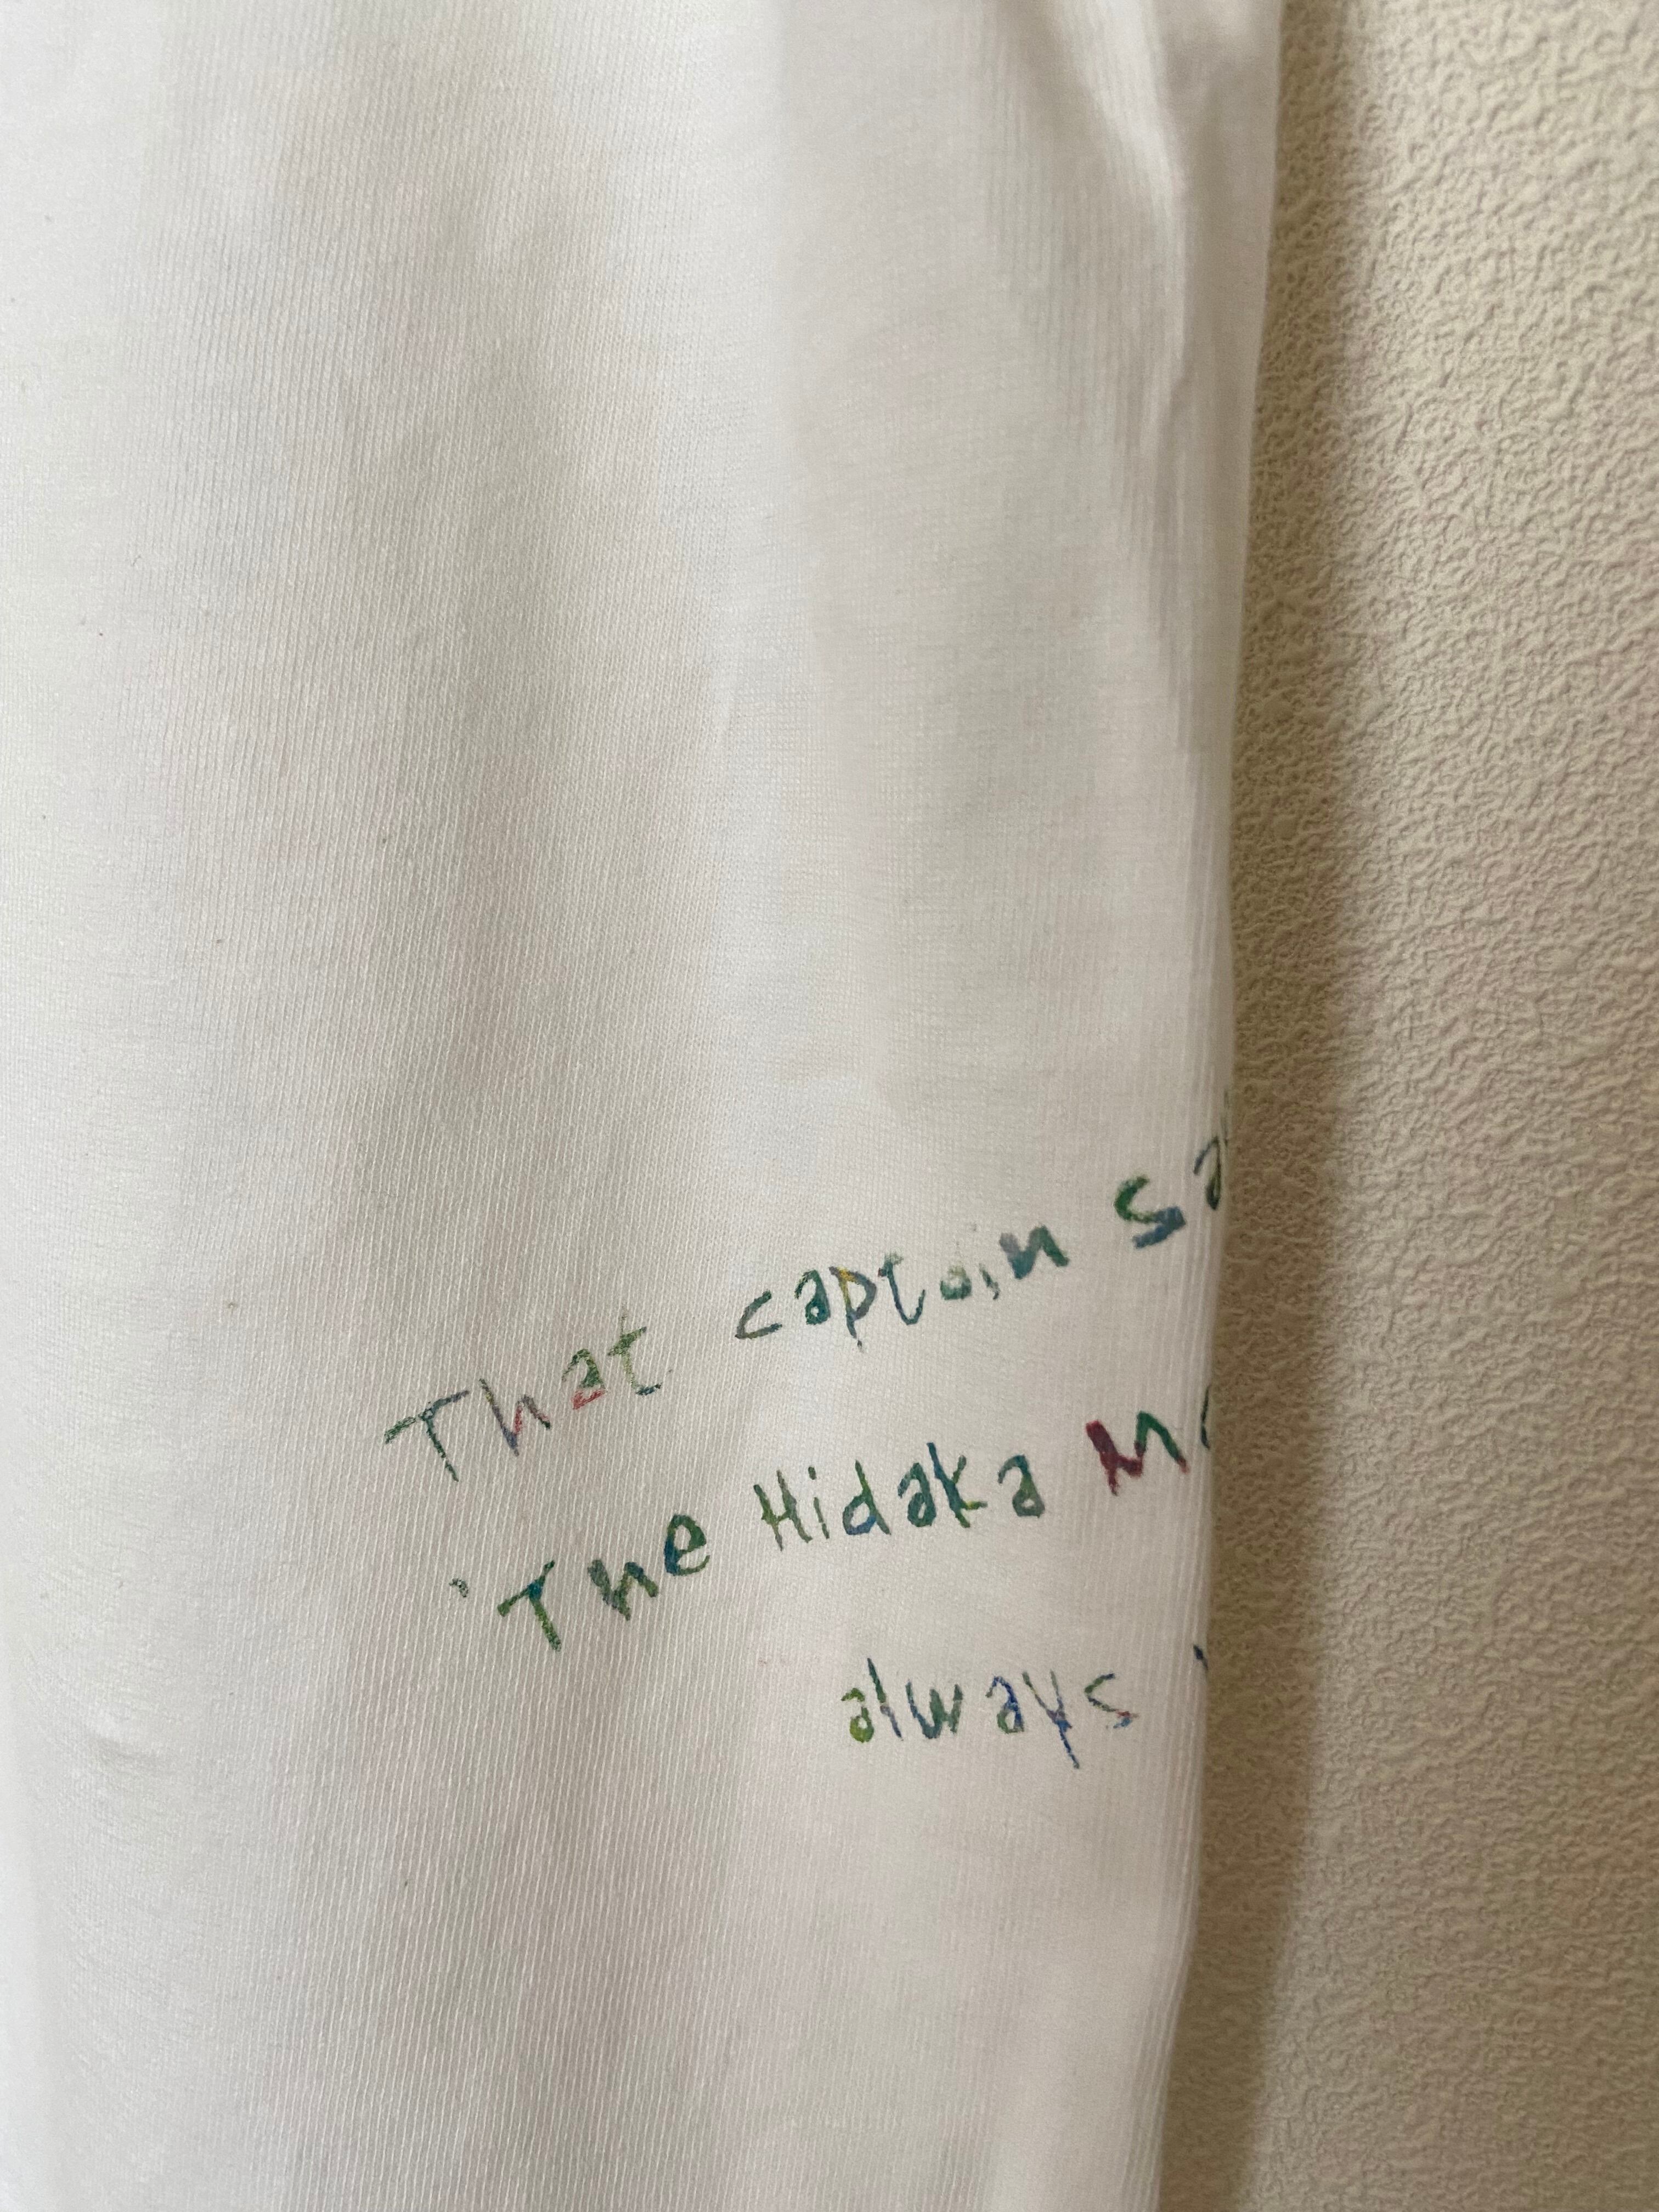 That captain
'The Hidaka
always